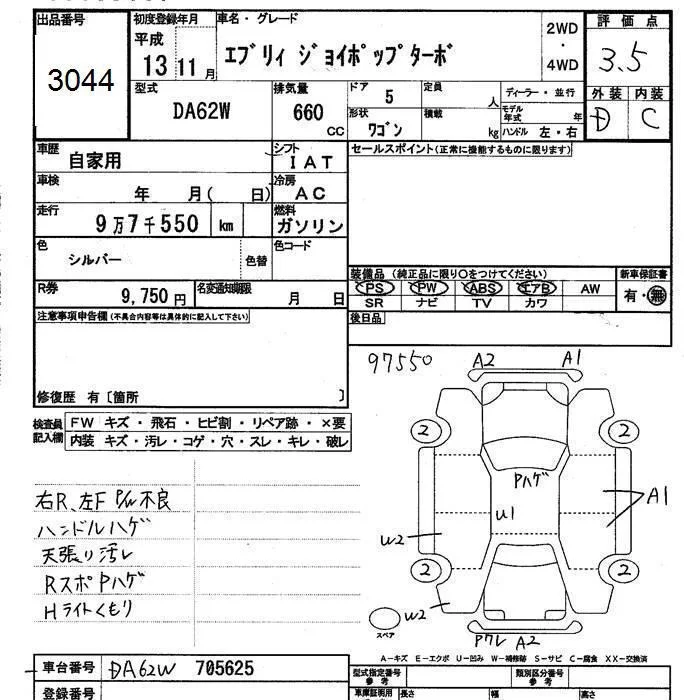 出品番号
3044
初度登録年月
平成
13 11 月
車名・グレード
エブリィ ジョイポップターボ
2WD
・
4WD
評価点
3.5
外装 内装
D C
型式
DA62W
排気量
660
CC
ドア
5
形状
ワゴン
定員
人
積載
kg
ディーラー・並行
モデル年式 年
ハンドル 左・右
車歴
自家用
シフト
IAT
セールスポイント(正常に機能するものに限ります)
車検
年 月( 日)
冷房
AC
走行
9万7千550 km
燃料
ガソリン
色
シルバー
色替
色コード
装備品 (純正品に限り○をつけてください)
PS PW ABS エアB AW
SR ナビ TV カワ
新車保証書
有・無
R券
9,750 円
名変通知期限
月 日
後日品
注意事項申告欄(不具合内容等は具体的に記入して下さい)
修復歴 有〔箇所 〕
検査員記入欄
FW キズ・飛石・ヒビ割・リペア跡・×要
内装 キズ・汚レ・コゲ・穴・スレ・キレ・破レ
97550
A2 A1
2 2
Pハゲ
A1
U1
W2
2 2
W2
スペア
Pワレ A2
右R、左F P/W不良
ハンドルハゲ
天張り汚レ
RスポPハゲ
Hライトくもり
A-キズ E-エクボ U-凹み W-補修跡 S-サビ C-腐食 XX-交換済
車台番号
DA62W 705625
登録番号
型式指定番号
参考
類別区分番号
参考
車庫証明用
長さ
幅
高さ